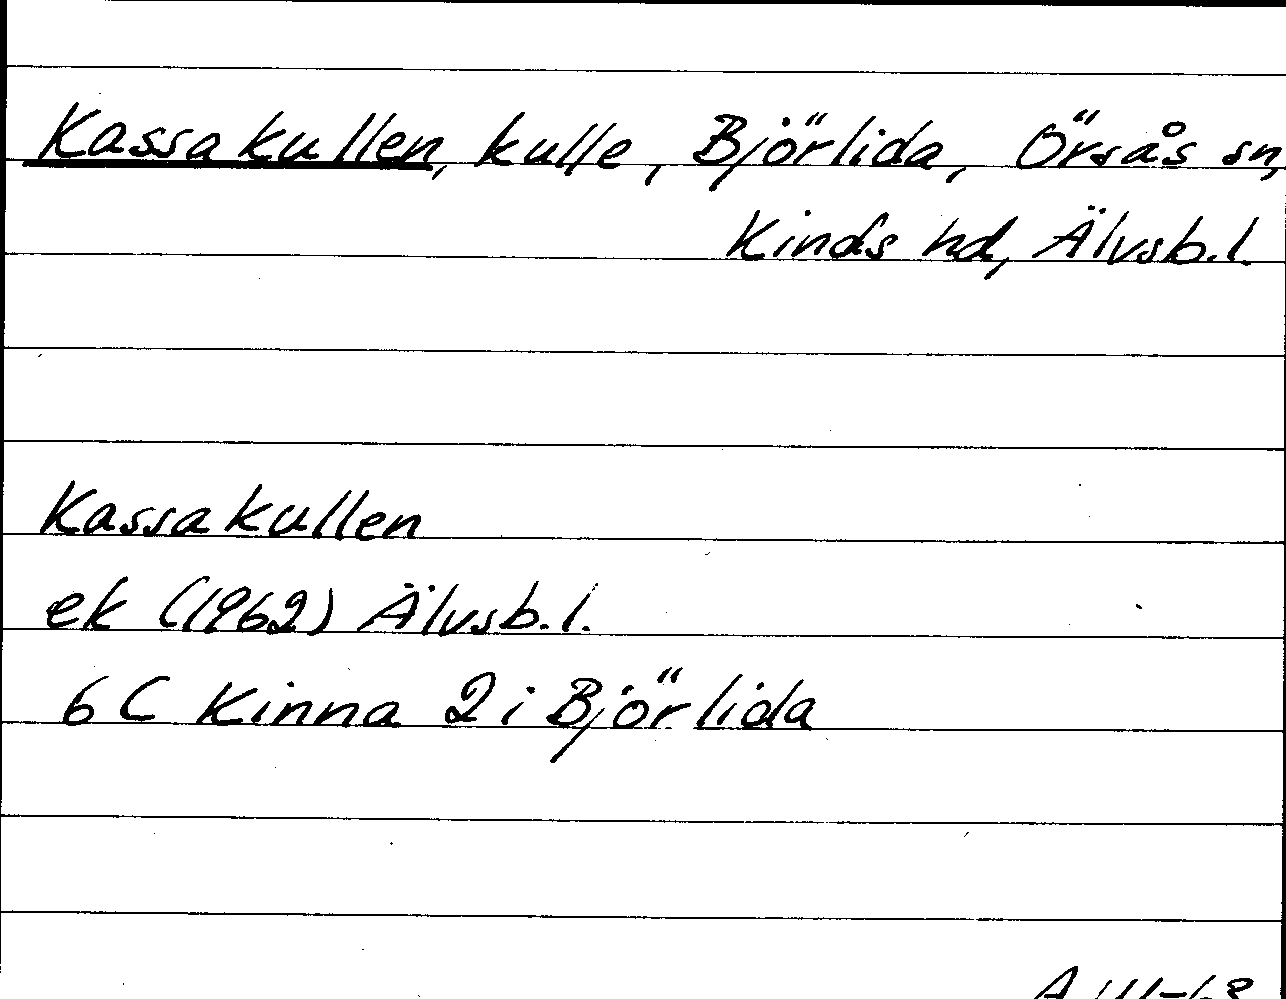 Kassakullen, kulle, Björlida, Örsås sn,
Kinds hd, Älvsb.l.
Kassakullen
ek (1962) Älvsb.l.
6 C Kinna 2 i Björlida